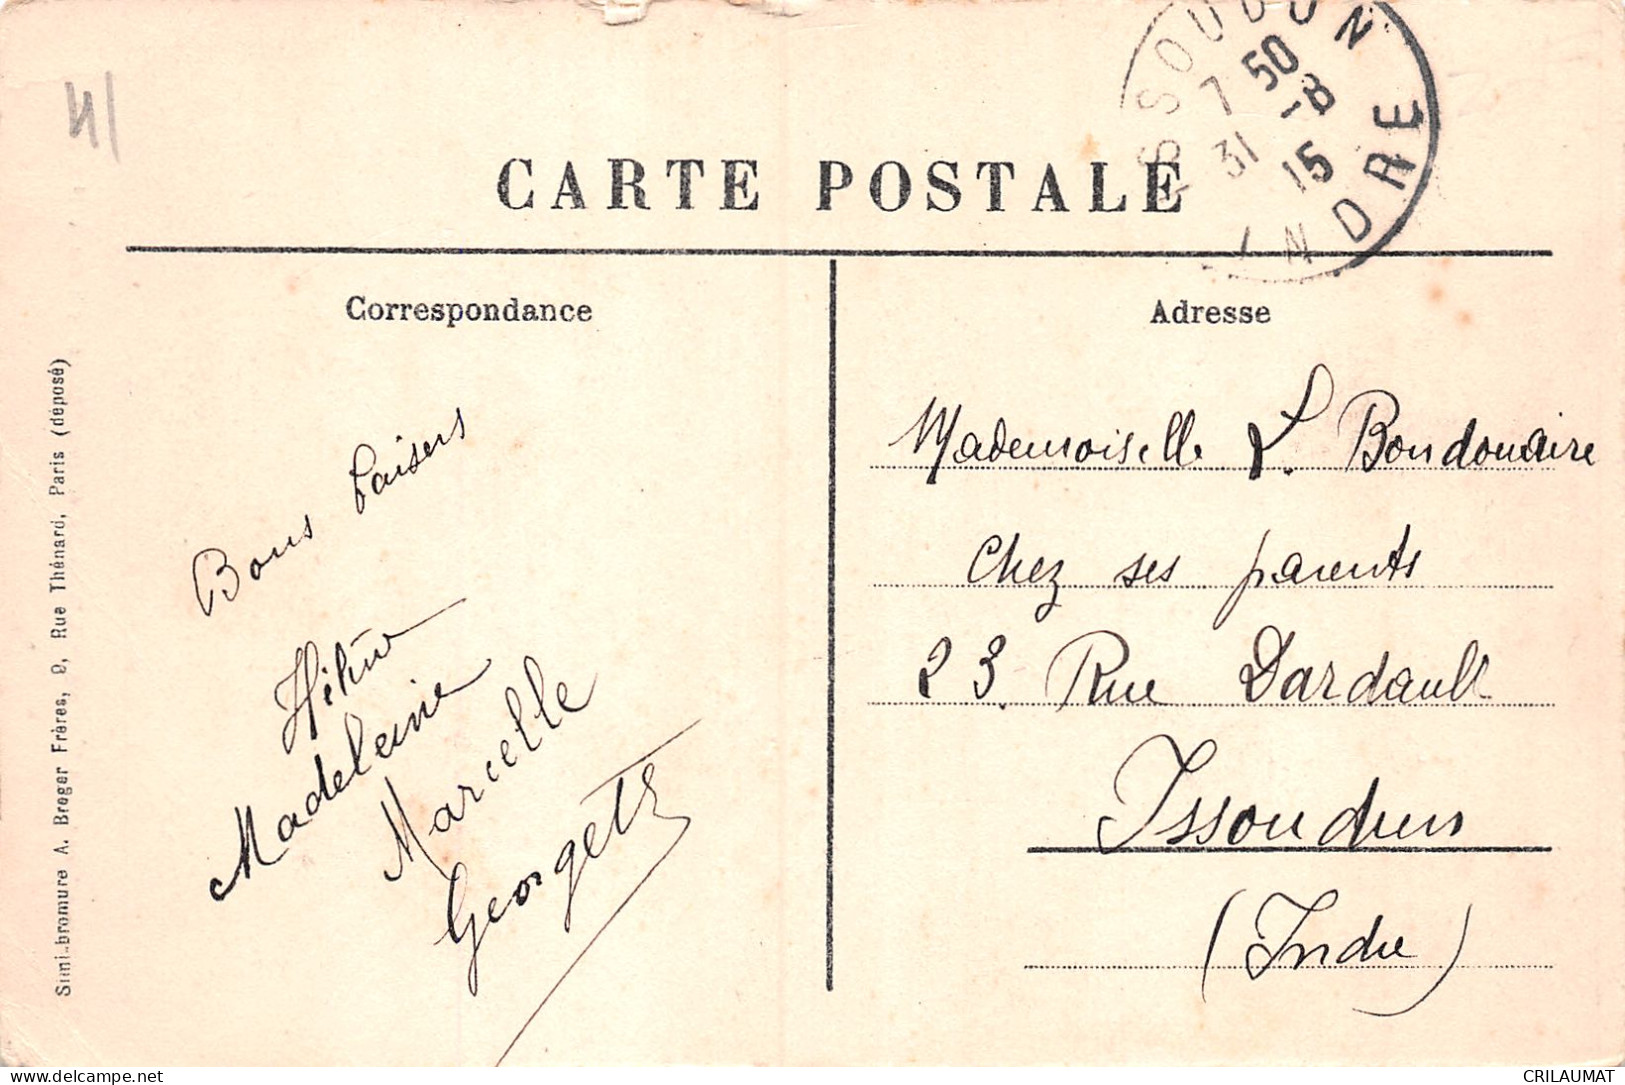 41
ISSOUDUN
7 50
31 -8
15
INDRE
CARTE POSTALE
Correspondance
Adresse
Simili-bromure A. Breger Frères, 9, Rue Thénard, Paris (déposé)
Bons baisers
Madeleine
Marcelle
Georgette
Mademoiselle L. Bondonaire
Chez ses parents
23 Rue Dardault
Issoudun
(Indre)
CRILAUMAT